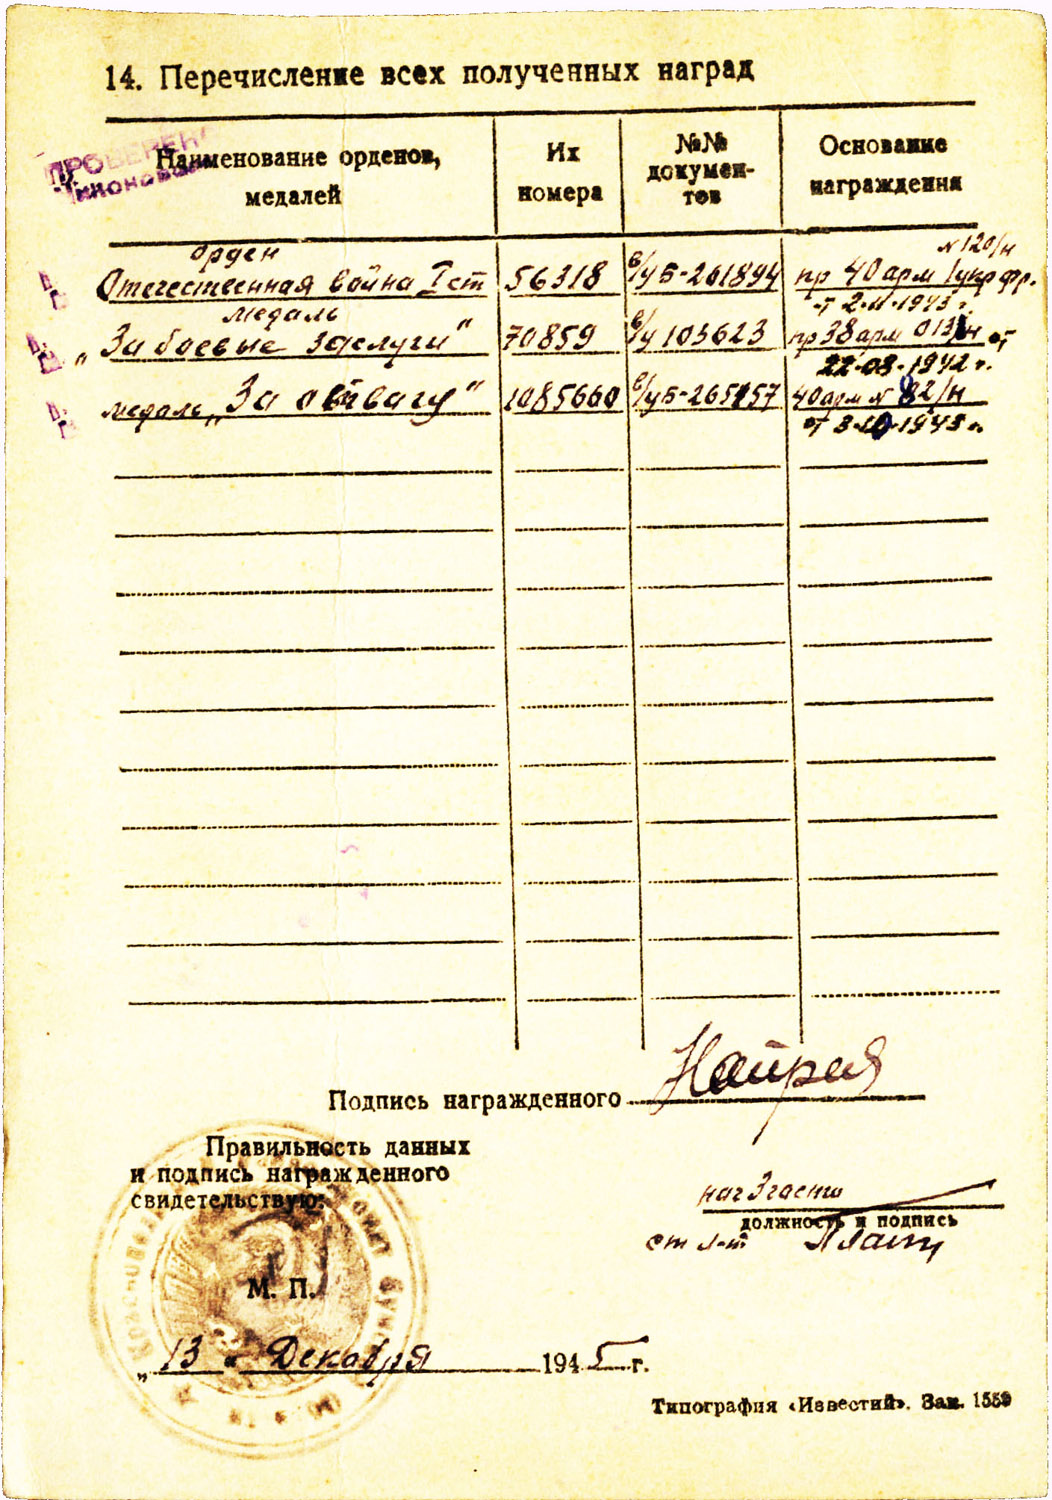 14. Перечисление всех полученных наград
ПРОВЕРЕНО
Наименование орденов, медалей
Их номера
№№ документов
Основание награждения
орден
Отечественная война I ст
56318
в/у Б-261894
пр 40 арм 1 укр фр.
N 120/н
от 2.11.1943 г.
медаль
„За боевые заслуги“
70859
в/у 103623
пр 38 арм 013/н от
22.08.1942 г.
медаль „За отвагу“
1085660
в/у Б-265157
40 арм N 82/н
от 3.10.1943 г.
Подпись награжденного
Правильность данных
и подпись награжденного
свидетельствую:
нач 3 части
должность и подпись
ст л-т
М. П.
„13“ Декабря 1945 г.
Типография «Известий». Зак. 1559